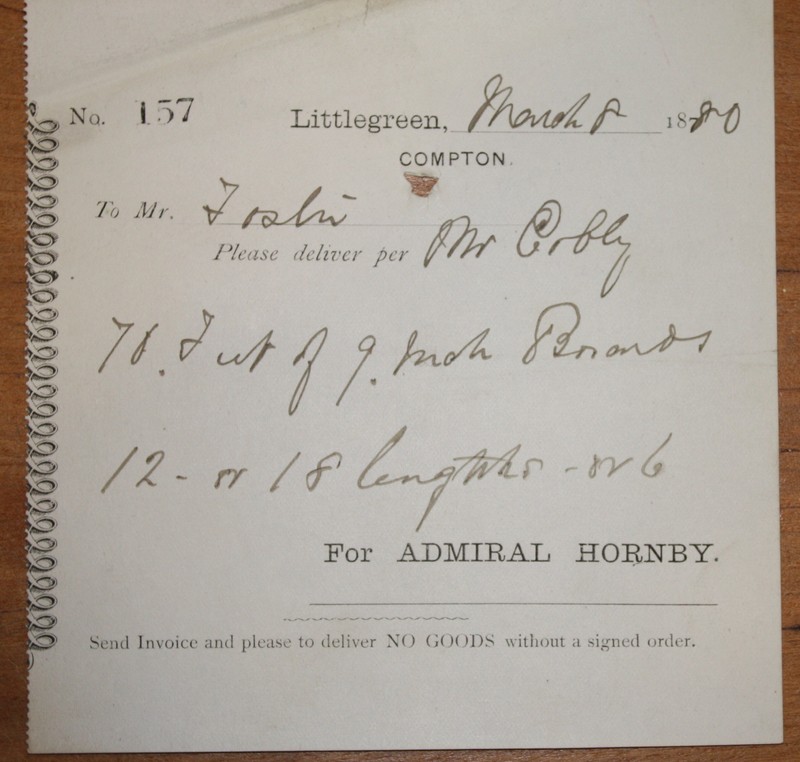 No. 157
Littlegreen, March 8 1880
COMPTON.
To Mr. Foslin
Please deliver per Mr Cobby
70. Feet of 9. Inch Boards
12 - or 18 lengths - or 6
For ADMIRAL HORNBY.
Send Invoice and please to deliver NO GOODS without a signed order.